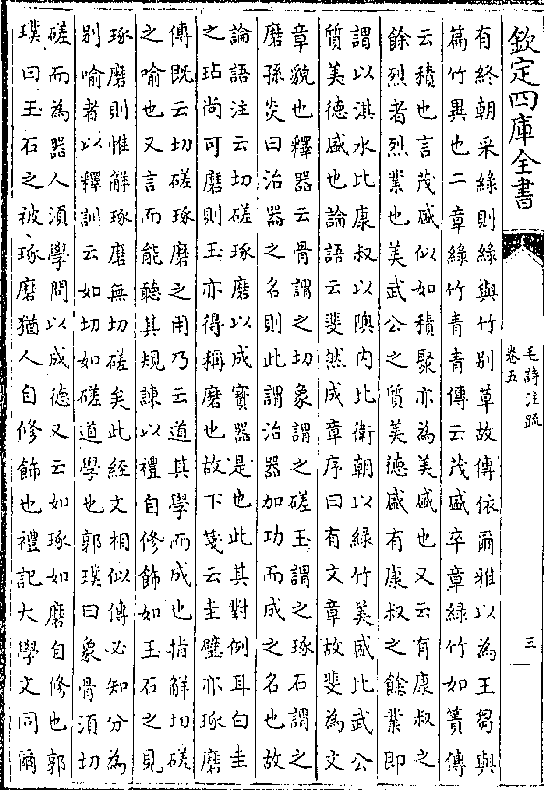 欽定四庫全書
毛詩注疏
卷五
三
有終朝采綠則綠與竹别草故傳依爾雅以為王芻與
篇竹異也二章綠竹青青傳云茂盛卒章綠竹如簀傳
云積也言茂盛似如積聚亦為美盛也又云有康叔之
餘烈者烈業也美武公之質美德盛有康叔之餘業即
謂以淇水比康叔以隩内比衛朝以綠竹美盛比武公
質美德盛也論語云斐然成章序曰有文章故斐為文
章貌也釋器云骨謂之切象謂之磋玉謂之琢石謂之
磨孫炎曰治器之名則此謂治器加功而成之名也故
論語注云切磋琢磨以成寳器是也此其對例耳白圭
之玷尚可磨則玉亦得稱磨也故下箋云圭璧亦琢磨
傳既云切磋琢磨之用乃云道其學而成也指解切磋
之喻也又言而能聽其規諫以禮自修飾如玉石之見
琢磨則惟解琢磨無切磋矣此經文相似傳必知分為
别喻者以釋訓云如切如磋道學也郭璞曰象骨須切
磋而為器人須學問以成德又云如琢如磨自修也郭
璞曰玉石之被琢磨猶人自修飾也禮記大學文同爾